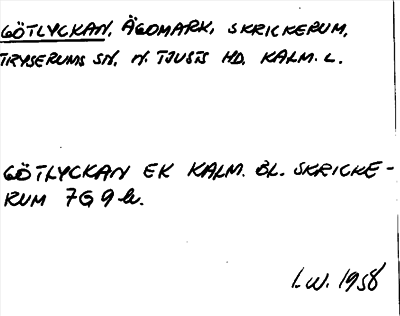 GÖTLYCKAN, ÄGOMARK, SKRICKERUM,
TRYSERUMS SN, N. TJUSTS HD, KALM. L.
GÖTLYCKAN EK KALM. BL. SKRICKE-
RUM 7G 9h.
I.W. 1958